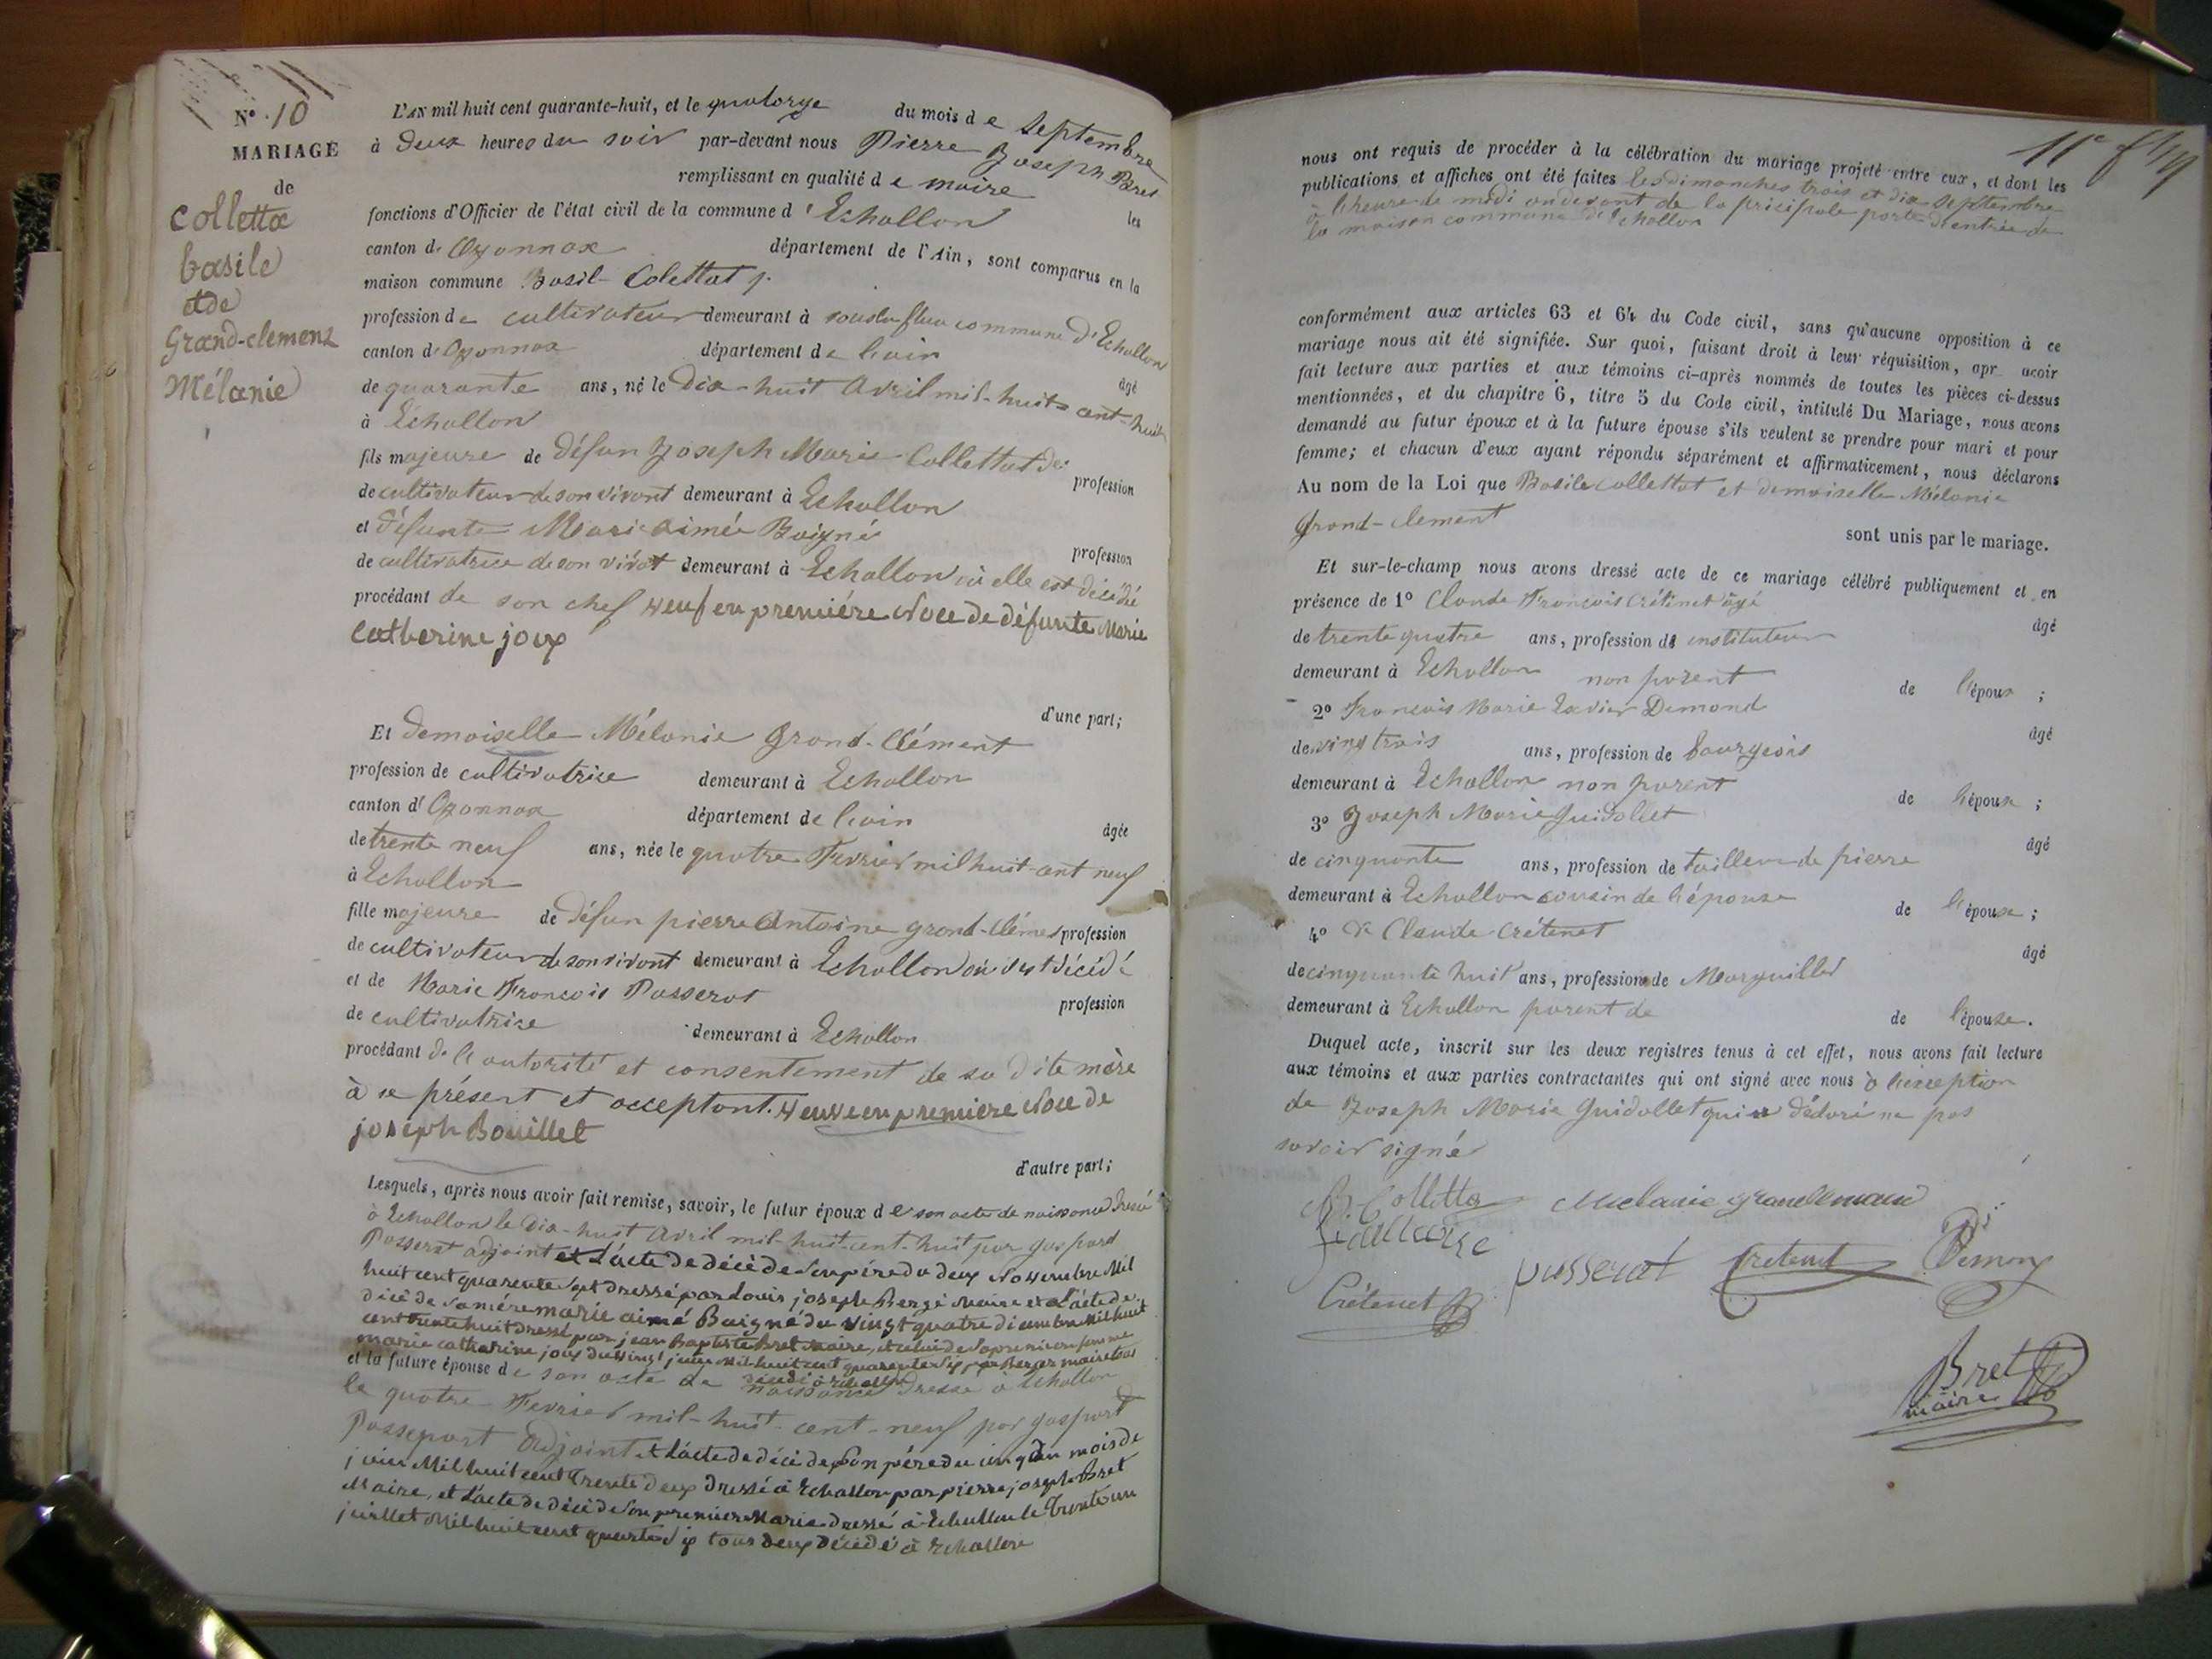 N° 10
MARIAGE
de
Colletta
basile
et de
Grand-clement
Mélanie
L'AN mil huit cent quarante-huit, et le quatorze du mois de Septembre
à deux heures du soir par-devant nous Pierre Joseph Bret
remplissant en qualité de maire les
fonctions d'Officier de l'état civil de la commune d'Echallon
canton d'Oyonnax département de l'Ain, sont comparus en la
maison commune Basil Colettat
profession de cultivateur demeurant à commune d'Echallon
canton d'Oyonnax département de l'ain âgé
de quarante ans, né le dix-huit Avril mil-huit-cent-huit
à Echallon
fils majeure de défun Joseph Marie Collettat de profession
de cultivateur de son vivant demeurant à Echallon
et défunte Marie Aimée Baigné profession
de cultivatrice de son vivat demeurant à Echallon où elle est décédé
procédant de son chef veuf en première Noce de défunte Marie
Catherine joux
d'une part;
Et demoiselle Mélanie Grand-Clément
profession de cultivatrice demeurant à Echallon
canton d'Oyonnax département de l'ain âgée
de trente neuf ans, née le quatre Fevrier mil huit-cent neuf
à Echallon
fille majeure de défun pierre Antoine grand-clément profession
de cultivateur de son vivant demeurant à Echallon où il est décédé
et de Marie François Passerat profession
de cultivatrise demeurant à Echallon
procédant de l'autorité et consentement de sa dite mère
à ce présent et acceptant. veuve en première Noce de
joseph Bouillet
d'autre part;
Lesquels, après nous avoir fait remise, savoir, le futur époux de son acte de naissance dressé
à Echallon le dix-huit Avril mil-huit-cent-huit par gaspard
Passerat adjoint et L'acte de décè de Son père du deux Novembre Mil
huit cent quarente Sept dressé par Louis joseph Berger Maire et L'acte de
décè de Sa mère marie aimé Baigné du vingt quatre dicembre Mil huit
cent trente huit dressé par jean Baptiste Bret Maire, et celui de Sa première femme
marie catharine joux du vingt juin Mil huit cent quarente Six par Berger maire tous
décédé à Echallon
et la future épouse de son acte de naissance dressé à Echallon
le quatre Fevrier mil-huit-cent-neuf par gaspard
Passerart Adjoint et L'acte de décè de Son père du cinq du mois de
juin Mil huit cent trente deux dressé à Echallon par pierre joseph Bret
Maire, et L'acte de décè de Son premier Marie dressé à Echallon le Trente un
juillet Mil huit cent quarte Six tous deux décédé à Echallon
11e
nous ont requis de procéder à la célébration du mariage projeté entre eux, et dont les
publications et affiches ont été faites les dimanches trois et dix septembre
à l'heure de midi au devant de la pricipale porte d'entrée de
la maison commune d'Echallon
conformément aux articles 63 et 64 du Code civil, sans qu'aucune opposition à ce
mariage nous ait été signifiée. Sur quoi, faisant droit à leur réquisition, apr avoir
fait lecture aux parties et aux témoins ci-après nommés de toutes les pièces ci-dessus
mentionnées, et du chapitre 6, titre 5 du Code civil, intitulé Du Mariage, nous avons
demandé au futur époux et à la future épouse s'ils veulent se prendre pour mari et pour
femme; et chacun d'eux ayant répondu séparément et affirmativement, nous déclarons
Au nom de la Loi que Basile Collettat et demoiselle Mélanie
Grand-clement
sont unis par le mariage.
Et sur-le-champ nous avons dressé acte de ce mariage célébré publiquement et en
présence de 1° Claude François Crétenet âgé âgé
de trente quatre ans, profession de instituteur
demeurant à Echallon non parent de l'époux ;
2° François Marie Xavier Demond âgé
de ving trois ans, profession de bourgeois
demeurant à Echallon non parent de l'époux ;
3° Joseph Marie Guidollet âgé
de cinquante ans, profession de tailleur de pierre
demeurant à Echallon cousin de l'épouse de l'épouse ;
4° de Claude Crétenet âgé
de cinquante huit ans, profession de Marguiller
demeurant à Echallon parent de de l'épouse.
Duquel acte, inscrit sur les deux registres tenus à cet effet, nous avons fait lecture
aux témoins et aux parties contractantes qui ont signé avec nous à l'exception
de Joseph Marie Guidollet qui a déclaré ne pas
savoir signé
B Colletta Melanie grandclement
passerat Cretenet Demond
Crétenet
Bret
maire